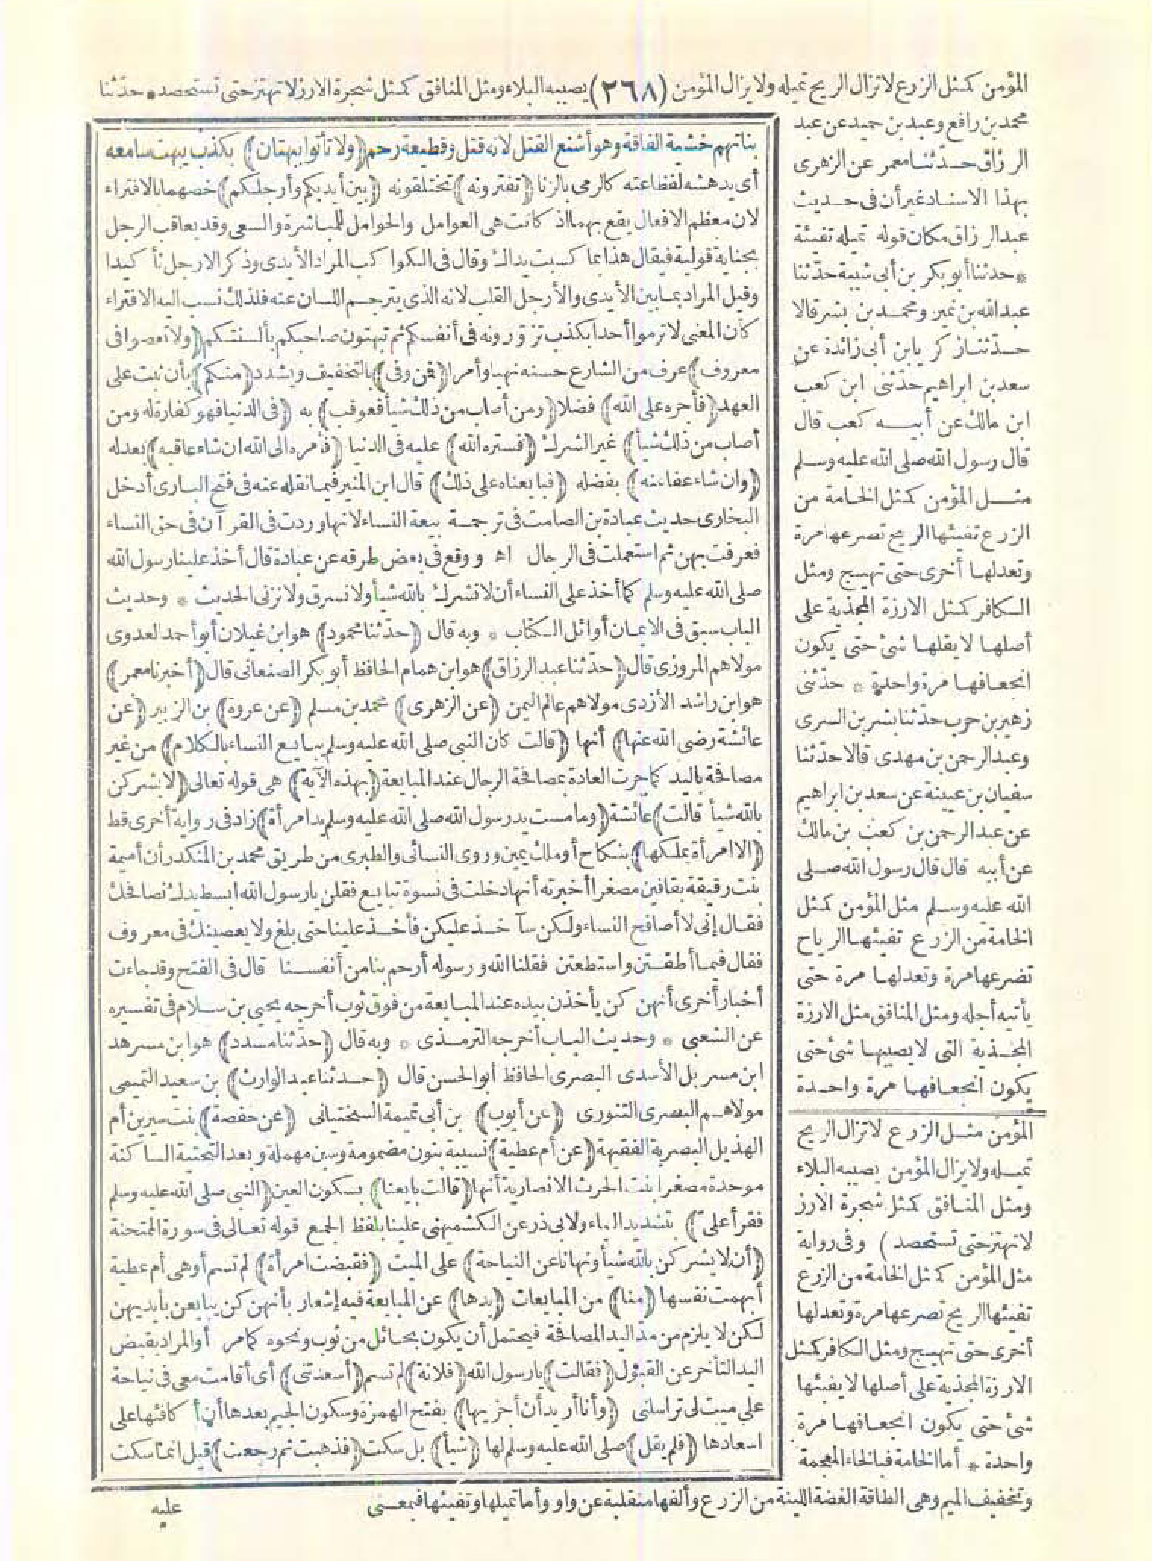 المؤمن كمثل الزرع لا تزال الريح تميله ولا يزال المؤمن (٢٦٨) يصيبه البلاء ومثل المنافق كمثل شجرة الارز لا تهتز حتى تستحصد * حدثنا
محمد بن رافع وعبد بن حميد عن عبد
الرزاق حدثنا معمر عن الزهرى
بهذا الاسناد غير أن فى حديث
عبد الرزاق مكان قوله تميله تفيئه
* حدثنا أبو بكر بن أبى شيبة حدثنا
عبد الله بن نمير ومحمد بن بشر قالا
حدثنا زكريا بن أبى زائدة عن
سعد بن ابراهيم حدثنى ابن كعب
ابن مالك عن أبيه كعب قال
قال رسول الله صلى الله عليه وسلم
مثل المؤمن كمثل الخامة من
الزرع تفيئها الريح تصرعها مرة
وتعدلها أخرى حتى تهيج ومثل
الكافر كمثل الارزة المجذية على
أصلها لا يقلها شئ حتى يكون
انجعافها مرة واحدة * حدثنى
زهير بن حرب حدثنا بشر بن السرى
وعبد الرحمن بن مهدى قالا حدثنا
سفيان بن عيينة عن سعد بن ابراهيم
عن عبد الرحمن بن كعب بن مالك
عن أبيه قال قال رسول الله صلى
الله عليه وسلم مثل المؤمن كمثل
الخامة من الزرع تفيئها الرياح
تصرعها مرة وتعدلها مرة حتى
يأتيه أجله ومثل المنافق مثل الارزة
المجذية التى لا يصيبها شئ حتى
يكون انجعافها مرة واحدة
المؤمن مثل الزرع لا تزال الريح
تميله ولا يزال المؤمن يصيبه البلاء
ومثل المنافق كمثل شجرة الارز
لا تهتز حتى تستحصد) وفى رواية
مثل المؤمن كمثل الخامة من الزرع
تفيئها الريح تصرعها مرة وتعدلها
أخرى حتى تهيج ومثل الكافر كمثل
الارزة المجذية على أصلها لا يفيئها
شئ حتى يكون انجعافها مرة
واحدة * أما الخامة فبالخاء المعجمة
وتخفيف الميم وهى الطاقة الغضة اللينة من الزرع وألفها منقلبة عن واو وأما تميلها وتفيئها فبمعنى
بناتهم خشية الفاقة وهو أشنع القتل لانه قتل وقطيعة رحم (ولا تأتوا ببهتان) بكذب يبهت سامعه
أى يدهشه لفظاعته كالرمى بالزنا (تفترونه) تختلقونه (بين أيديكم وأرجلكم) خصهما بالافتراء
لان معظم الافعال يقع بهما اذ كانت هى العوامل والحوامل للمباشرة والسعى وقد يعاقب الرجل
بجناية قولية فيقال هذا بما كسبت يداك وقال فى الكواكب المراد الأيدى وذكر الارجل تأكيدا
وقيل المراد بما بين الأيدى والأرجل القلب لانه الذى يترجم اللسان عنه فلذلك نسب اليه الافتراء
كأن المعنى لا ترموا أحدا بكذب تزورونه فى أنفسكم ثم تبهتون صاحبكم بألسنتكم (ولا تعصوا فى
معروف) عرف من الشارع حسنه نهيا وأمرا (فمن وفى) بالتخفيف ويشدد (منكم) بأن ثبت على
العهد (فأجره على الله) فضلا (ومن أصاب من ذلك شيأ فعوقب) به (فى الدنيا فهو كفارة له ومن
أصاب من ذلك شيأ) غير الشرك (فستره الله) عليه فى الدنيا (فأمره الى الله ان شاء عاقبه) بعدله
(وان شاء عفا عنه) بفضله (فبايعناه على ذلك) قال ابن المنير فيما نقله عنه فى فتح البارى أدخل
البخارى حديث عبادة بن الصامت فى ترجمة بيعة النساء لانها وردت فى القرآن فى حق النساء
فعرفت بهن ثم استعملت فى الرجال اه ووقع فى بعض طرقه عن عبادة قال أخذ علينا رسول الله
صلى الله عليه وسلم كما أخذ على النساء أن لا نشرك بالله شيأ ولا نسرق ولا نزنى الحديث * وحديث
الباب سبق فى الايمان أوائل الكتاب * وبه قال (حدثنا محمود) هو ابن غيلان أبو أحمد العدوى
مولاهم المروزى قال (حدثنا عبد الرزاق) هو ابن همام الحافظ أبو بكر الصنعانى قال (أخبرنا معمر)
هو ابن راشد الأزدى مولاهم عالم اليمن (عن الزهرى) محمد بن مسلم (عن عروة) بن الزبير (عن
عائشة رضى الله عنها) أنها (قالت كان النبى صلى الله عليه وسلم يبايع النساء بالكلام) من غير
مصافحة باليد كما جرت العادة بمصافحة الرجال عند المبايعة (بهذه الآية) هى قوله تعالى (لا يشركن
بالله شيأ قالت) عائشة (وما مست يد رسول الله صلى الله عليه وسلم يد امرأة) زاد فى رواية أخرى قط
(الا امرأة يملكها) بنكاح أو ملك يمين وروى النسائى والطبرى من طريق محمد بن المنكدر أن أميمة
بنت رقيقة بقافين مصغرا أخبرته أنها دخلت فى نسوة تبايع فقلن يا رسول الله ابسط يدك نصافحك
فقال إنى لا أصافح النساء ولكن سآخذ عليكن فأخذ علينا حتى بلغ ولا يعصينك فى معروف
فقال فيما أطقتن واستطعتن فقلنا الله ورسوله أرحم بنا من أنفسنا قال فى الفتح وقد جاءت
أخبار أخرى أنهن كن يأخذن بيده عند المبايعة من فوق ثوب أخرجه يحيى بن سلام فى تفسيره
عن الشعبى * وحديث الباب أخرجه الترمذى * وبه قال (حدثنا مسدد) هو ابن مسرهد
ابن مسربل الأسدى البصرى الحافظ أبو الحسن قال (حدثنا عبد الوارث) بن سعيد التميمى
مولاهم البصرى التنورى (عن أيوب) بن أبى تميمة السختيانى (عن حفصة) بنت سيرين أم
الهذيل البصرية الفقيهة (عن أم عطية) نسيبة بنون مضمومة وسين مهملة وبعد التحتية الساكنة
موحدة مصغرا بنت الحرث الانصارية أنها (قالت بايعنا) بسكون العين (النبى صلى الله عليه وسلم
فقرأ على) بتشديد الياء ولابى ذر عن الكشميهنى علينا بلفظ الجمع قوله تعالى فى سورة الممتحنة
(أن لا يشركن بالله شيأ ونهانا عن النياحة) على الميت (فقبضت امرأة) لم تسم أو هى أم عطية
أبهمت نفسها (منا) من المبايعات (يدها) عن المبايعة فيه إشعار بأنهن كن يبايعن بأيديهن
لكن لا يلزم من مد اليد المصافحة فيحتمل أن يكون بحائل من ثوب ونحوه كما مر أو المراد بقبض
اليد التأخر عن القبول (فقالت) يا رسول الله (فلانة) لم تسم (أسعدتنى) أى أقامت معى فى نياحة
على ميت لى تراسلنى (وأنا أريد أن أجزيها) بفتح الهمزة وسكون الجيم بعدها أن أكافئها على
اسعادها (فلم يقل) صلى الله عليه وسلم لها (شيأ) بل سكت (فذهبت ثم رجعت) قيل انما سكت
عليه